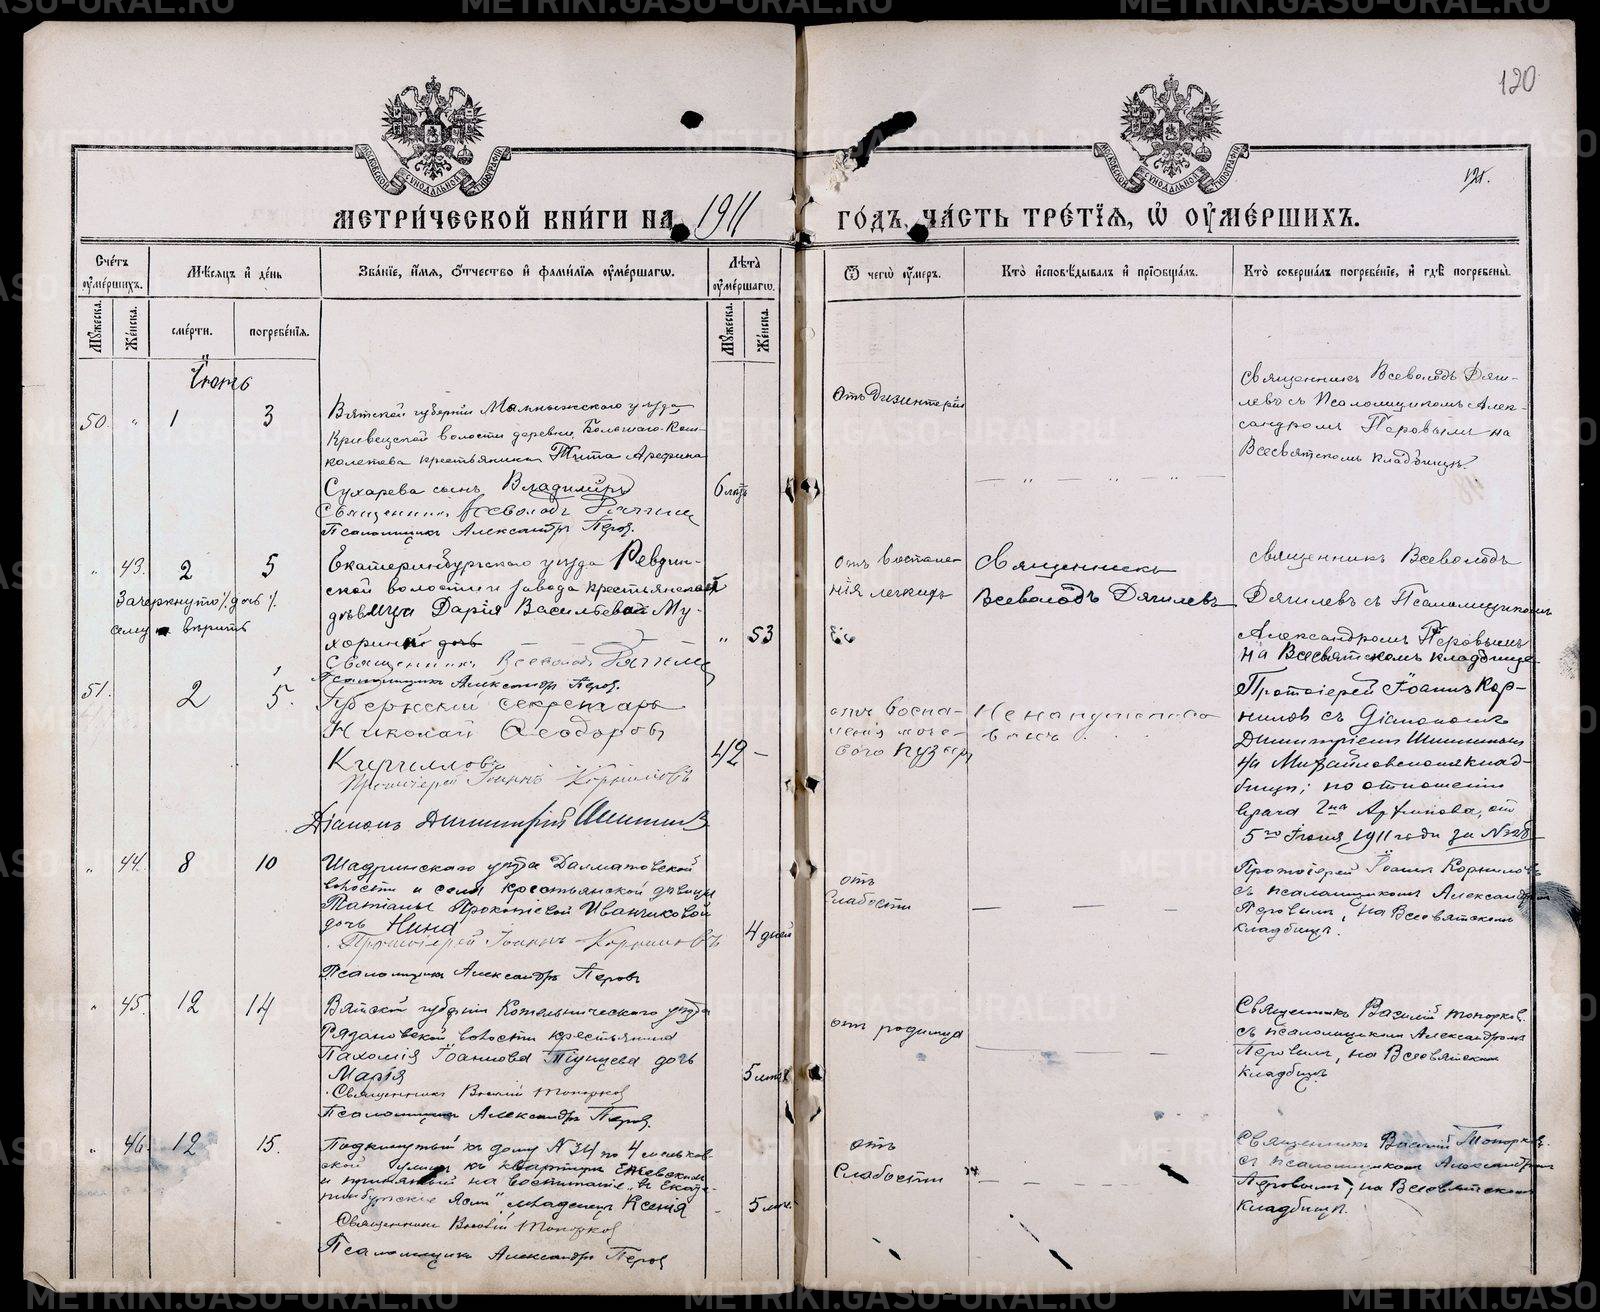 120
121.
МЕТРИ́ЧЕСКОЙ КНИ́ГИ НА 1911 ГО́ДЪ, ЧА́СТЬ ТРЕ́ТІѦ, Ѡ ОУМЕ́РШИХЪ.
Сче́тъ оуме́ршихъ.
Мѣсяцъ и де́нь
Зва́нїе, и́мя, о́тчество и фами́лїя оуме́ршагѡ.
Лѣта̀ оуме́ршагѡ.
Ѿ чегѡ̀ оу́меръ.
Кто̀ исповѣ́дывалъ и прїобща́лъ.
Кто̀ соверша́лъ погребе́нїе, и гдѣ̀ погребены̀.
Му́жеска.
Же́нска.
сме́рти.
погребе́нїя.
Му́жеска.
Же́нска.
Іюнь
50. " 1 3
Вятской губерніи Малмыжскаго уѣзда
волости деревни Большаго
крестьянина Тита Арефина
Сухарева сынъ Владиміръ
6 лѣтъ
Священникъ Всеволодъ Дягилевъ
Псаломщикъ Александръ Перовъ.
Отъ дизентеріи
— " — " — " —
Священникъ Всеволодъ Дяги-
левъ съ Псаломщикомъ Алек-
сандромъ Перовымъ на
Всесвятскомъ кладбищѣ.
" 43. 2 5
Екатеринбургскаго уѣзда Ревдин-
ской волости и завода крестьянская
дѣвица Дарія Васильева Му-
хорина дочь
" 53
Зачеркнуто "дочь"
ему вѣрить
Священникъ Всеволодъ Дягилевъ
Псаломщикъ Александръ Перовъ.
отъ воспале-
нія легкихъ
Священникъ
Всеволодъ Дягилевъ
Священникъ Всеволодъ
Дягилевъ съ Псаломщикомъ
Александромъ Перовымъ
на Всесвятскомъ кладбище
51. " 2 5.
Губернскій секретарь
Николай Ѳеодоровъ
Кирилловъ
42 —
Протоіерей Іоаннъ Корниловъ
Діаконъ Димитрій Шишкинъ
отъ воспа-
ленія моче-
вого пузыря
Не напутство-
ванъ
Протоіерей Іоаннъ Кор-
ниловъ съ Діакономъ
Димитріемъ
на Михайловскомъ клад-
бищѣ; по отношенію
врача Г-на от
5го Іюня 1911 года за №
" 44. 8 10
Шадринскаго уѣзда Далматовской
волости и села крестьянской дѣвицы
Татіаны Прокопіевой Иванчиковой
дочь Нина
4 дней
Протоіерей Іоаннъ Корниловъ
Псаломщикъ Александръ Перовъ
отъ
слабости
— — —
Протоіерей Іоаннъ Корниловъ
съ псаломщикомъ Александромъ
Перовымъ, на Всесвятскомъ
кладбищѣ.
" 45. 12 14
Вятской губерніи Котельническаго уѣзда
Рязановской волости крестьянина
Пахомія Іоаннова дочь
Марія
5 лѣтъ
Священникъ Василій Топорковъ
Псаломщикъ Александръ Перовъ.
отъ родимца
— — —
Священникъ Василій Топорковъ
съ псаломщикомъ Александромъ
Перовымъ, на Всесвятскомъ
кладбищѣ
" 46. 12 15.
Подкинутый къ дому № 34 по 4
ской улицѣ къ квартирѣ
и принятый на воспитаніе въ Екате-
ринбургскіе Ясли, младенецъ Ксенія
5
Священникъ Василій Топорковъ
Псаломщикъ Александръ Перовъ
отъ
слабости
— — —
Священникъ Василій Топорковъ
съ псаломщикомъ Александромъ
Перовымъ, на Всесвятскомъ
кладбищѣ.
METRIKI.GASO-URAL.RU